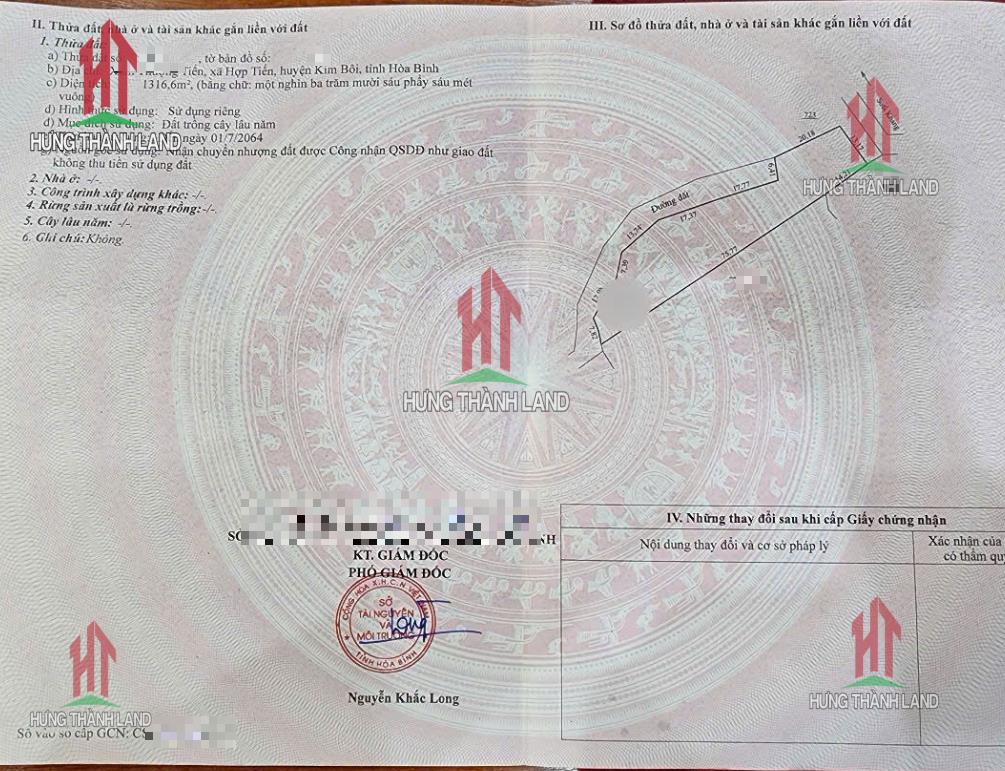 II. Thửa đất, nhà ở và tài sản khác gắn liền với đất
1. Thửa đất:
a) Thửa đất số , tờ bản đồ số:
b) Địa Tiến, xã Hợp Tiến, huyện Kim Bôi, tỉnh Hòa Bình
c) Diện 1316,6m², (bằng chữ: một nghìn ba trăm mười sáu phẩy sáu mét
vuông)
d) Hình thức sử dụng: Sử dụng riêng
đ) Mục đích sử dụng: Đất trồng cây lâu năm
ngày 01/7/2064
g) Nguồn gốc sử dụng: Nhận chuyển nhượng đất được Công nhận QSDĐ như giao đất
không thu tiền sử dụng đất
2. Nhà ở: -/-.
3. Công trình xây dựng khác: -/-.
4. Rừng sản xuất là rừng trồng:-/-.
5. Cây lâu năm: -/-.
6. Ghi chú: Không.
HƯNG THÀNH LAND
III. Sơ đồ thửa đất, nhà ở và tài sản khác gắn liền với đất
723
20,18
6,41
17,77
Đường đất
17,37
13,24
7,39
75,77
7,82
HƯNG THÀNH LAND
HT
HƯNG THÀNH LAND
KT. GIÁM ĐỐC
PHÓ GIÁM ĐỐC
CỘNG HÒA X.H.C.N VIỆT NAM
SỞ
TÀI NGUYÊN
VÀ
MÔI TRƯỜNG
TỈNH HÒA BÌNH
Nguyễn Khắc Long
IV. Những thay đổi sau khi cấp Giấy chứng nhận
Nội dung thay đổi và cơ sở pháp lý
Xác nhận của
có thẩm quy
HT
HƯNG THÀNH LAND
Số vào sổ cấp GCN: CS
HT
HƯNG THÀNH LAND